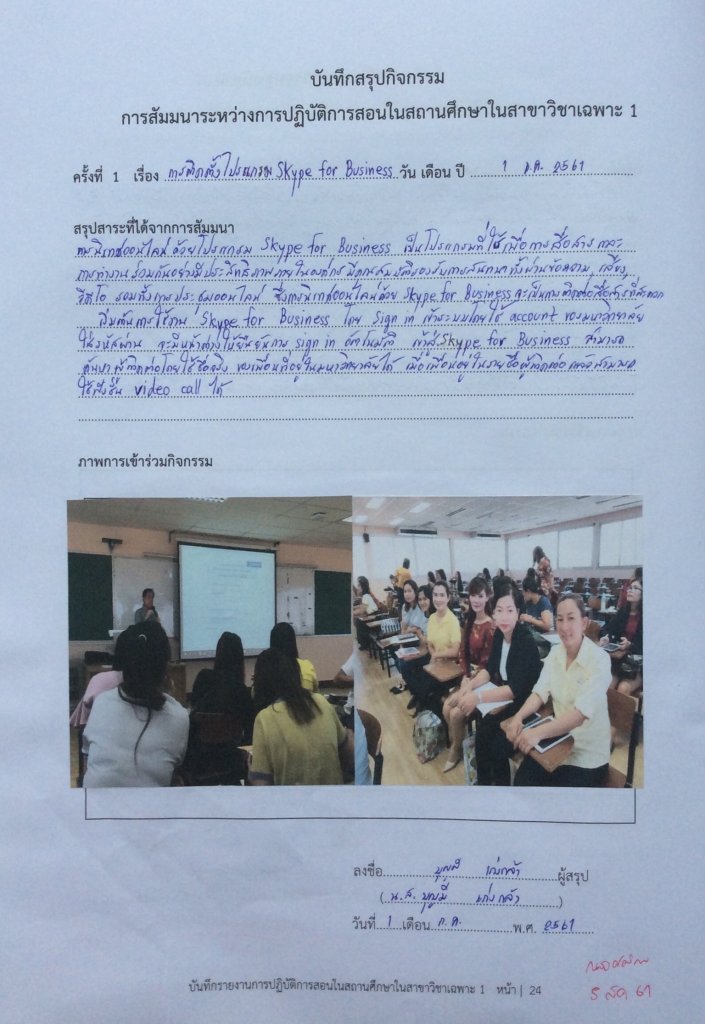 บันทึกสรุปกิจกรรม
การสัมมนาระหว่างการปฏิบัติการสอนในสถานศึกษาในสาขาวิชาเฉพาะ 1
ครั้งที่ 1 เรื่อง การติดตั้งโปรแกรม Skype for Business วัน เดือน ปี 1 ก.ค. 2561
สรุปสาระที่ได้จากการสัมมนา
การนิเทศออนไลน์ด้วยโปรแกรม Skype for Business เป็นโปรแกรมที่ใช้เพื่อการสื่อสารและ
การทำงานร่วมกันอย่างมีประสิทธิภาพภายในองค์กร มีคุณสมบัติรองรับการสนทนาทั้งผ่านข้อความ, เสียง,
วิดีโอ รวมทั้งการประชุมออนไลน์ ซึ่งการนิเทศออนไลน์ด้วย Skype for Business จะเป็นการติดต่อสื่อสารที่สะดวก
เริ่มต้นการใช้งาน Skype for Business โดย Sign in เข้าระบบโดยใช้ account ของมหาวิทยาลัย
ใส่รหัสผ่าน จะมีหน้าต่างให้ยืนยันการ sign in อัตโนมัติ เข้าสู่ Skype for Business สามารถ
ค้นหาผู้ติดต่อโดยใช้ชื่อจริง ของเพื่อนที่อยู่ในมหาวิทยาลัยได้ เมื่อเพื่อนอยู่ในรายชื่อผู้ติดต่อแล้วสามารถ
ใช้ฟังชั่น video call ได้
ภาพการเข้าร่วมกิจกรรม
ลงชื่อ บุญมี เก่งกล้า ผู้สรุป
(น.ส. บุญมี เก่งกล้า)
วันที่ 1 เดือน ก.ค. พ.ศ. 2561
บันทึกรายงานการปฏิบัติการสอนในสถานศึกษาในสาขาวิชาเฉพาะ 1 หน้า | 24
5 สค 61